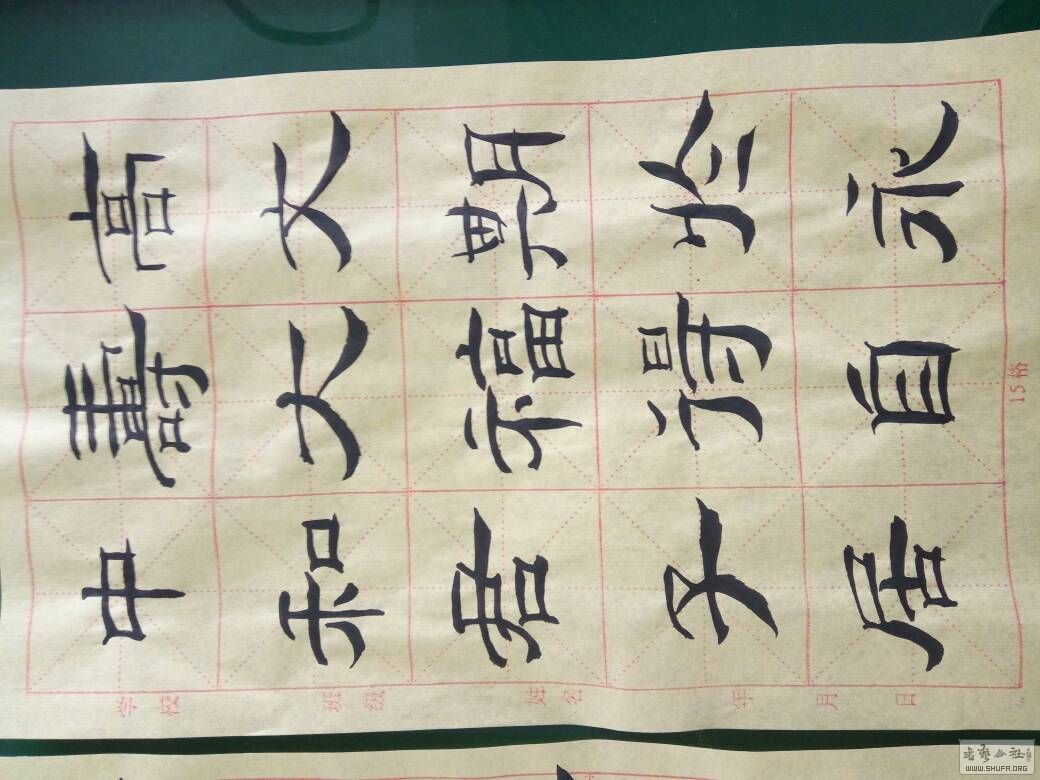 高文期於永
壽大福得自
中和君子居
学校 班级 姓名 年 月 日
15格
書藝公社
WWW.SHUFA.ORG